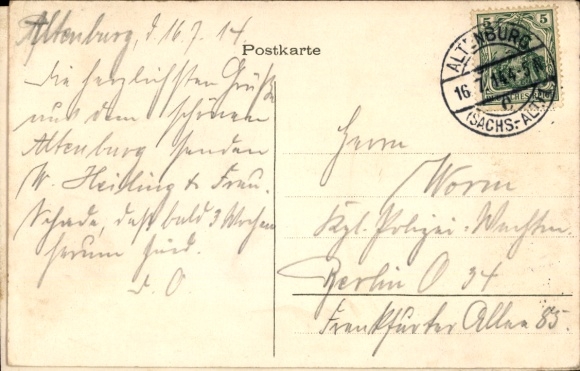 Altenburg, d. 16.7.14.
Postkarte
Die herzlichsten Grüße
aus dem schönen
Altenburg senden
W. Heiling & Frau.
Schade, daß bald 3 Wochen
herum sind.
D. O.
5 5
ALTENBURG
16.7.14.4-5N.
(SACHS.-ALT.)
Herrn
Worm
Kgl. Polizei-Wachtm.
Berlin O 34
Frankfurter Allee 85.